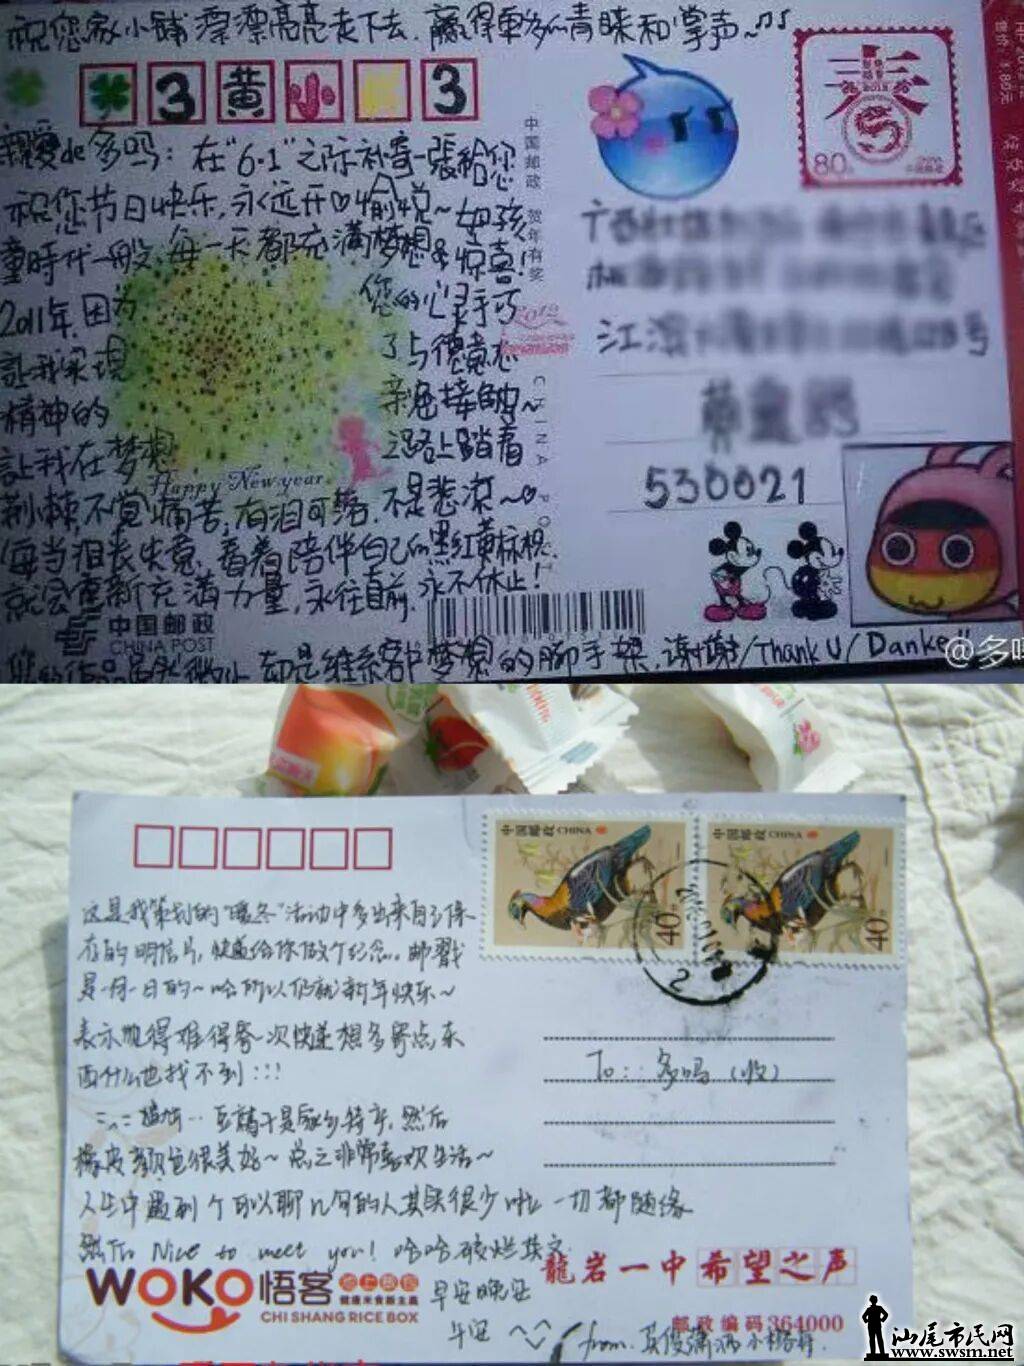 祝您家小铺漂漂亮亮走下去，赢得更多的青睐和掌声~
3黄小 3
亲爱de多吗：在“6·1”之际补寄一張給您
祝您节日快乐，永远开♡愉悦~如孩
童時代一般，每一天都充滿梦想&惊喜！
2011年，因为 您的心灵手巧
讓我实现 了与德意志
精神的 亲密接触~
讓我在梦想 之路上踏着
荆棘，不觉痛苦，有泪可落，不是悲凉~
每当沮丧失意，看着陪伴自己的黑红黄标枧
就会重新充满力量，永往直前，永不休止！
却是维系着梦想的脚手架，谢谢/Thank U/Danke
Happy New year
中国邮政
CHINA POST
中国邮政 贺年有奖
2012
CHINA POST
春
2012
80分
售价:1.80元
江滨
号
530021
@多吗
中国邮政 CHINA
40分
中国邮政 CHINA
40分
这是我策划的“暖冬”活动中多出来自己保
存的明信片，快递给你做个纪念。邮戳
是一月一日的~哈所以仍就新年快乐~
表示觉得难得寄一次快递想多寄点东
西什么也找不到！！！
豆腐干是家乡特产，然后
橡皮颜色很美好~总之非常喜欢生活~
人生中遇到个可以聊几句的人其实很少啦 一切都随缘
Nice to meet you! 哈哈破烂英文
早安晚安
午安
To: 多吗（收）
WOKO 悟客
健康米食新主義
CHI SHANG RICE BOX
龍岩一中希望之声
邮政编码364000
from. 英俊潇洒小
汕尾市民网
www.swsm.net